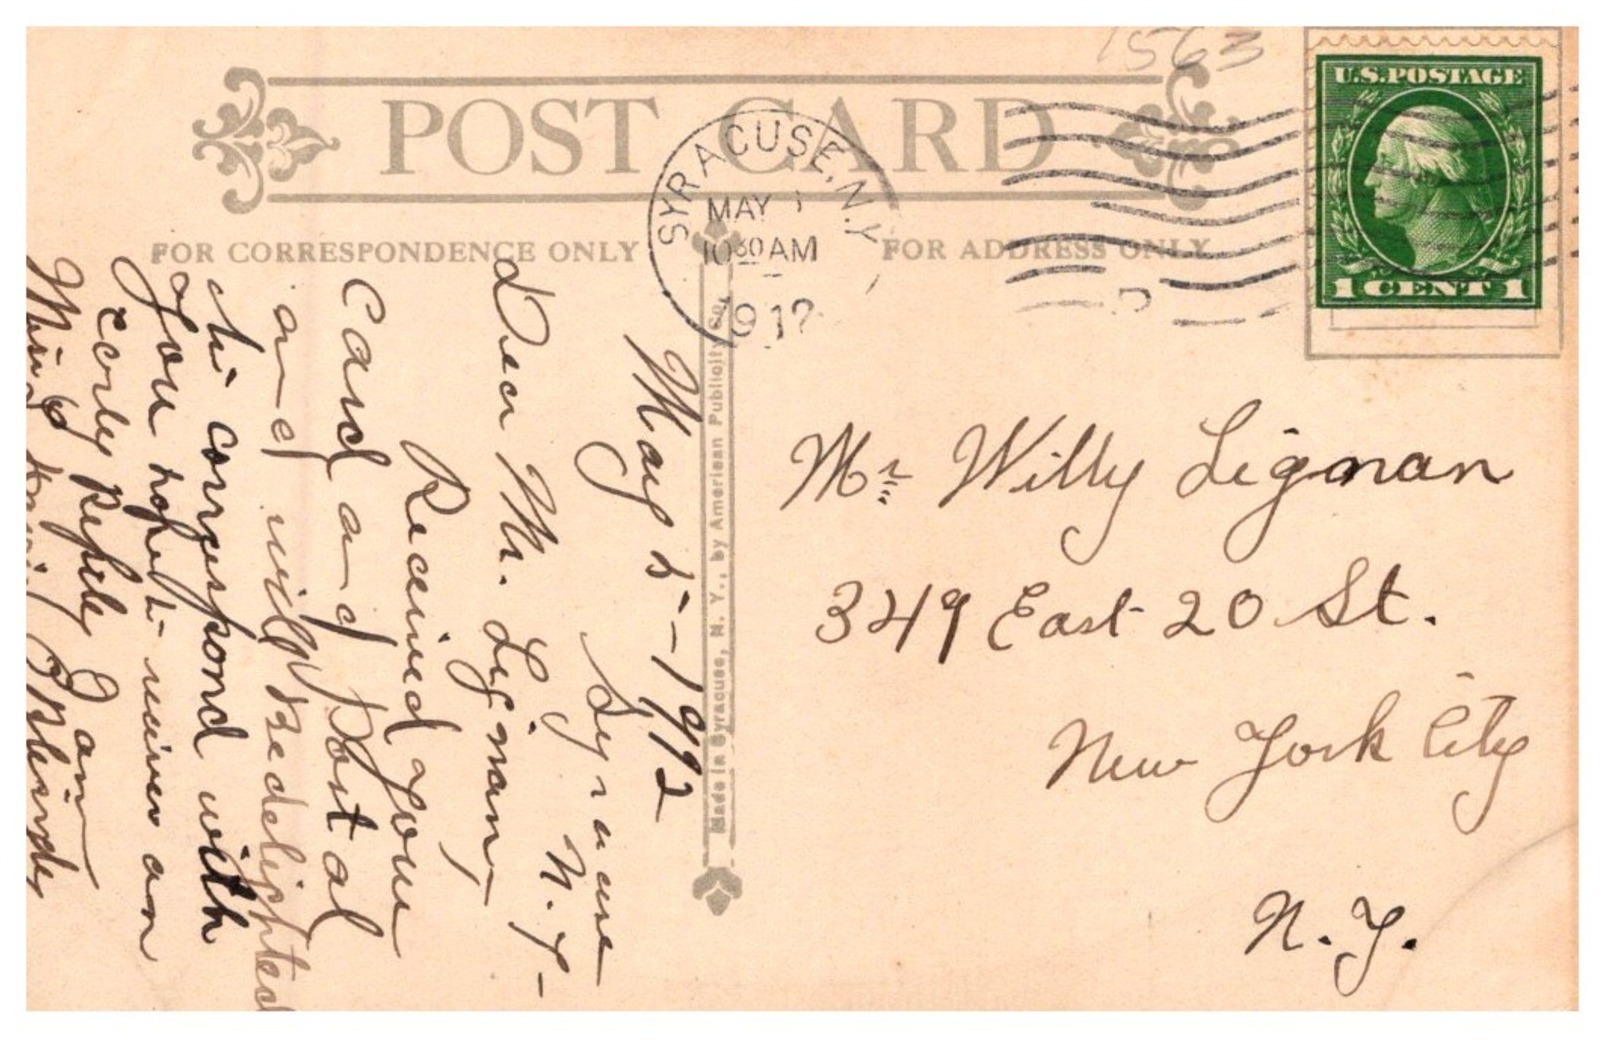 1563
POST CARD
U.S.POSTAGE
1 CENT 1
SYRACUSE, N.Y.
MAY
10 30 AM
1912
FOR CORRESPONDENCE ONLY
FOR ADDRESS ONLY
Made in Syracuse, N. Y., by American Publicity Co.
May 5-1912
Syracuse
N.Y-
Dear Mr. Ligman,
Received your
Card and postal
and will Be delighted
to correspond with
you hope to receive an
early Reply I am
Miss
Mr Willy Ligman
349 East 20 St.
New York City
N. Y.